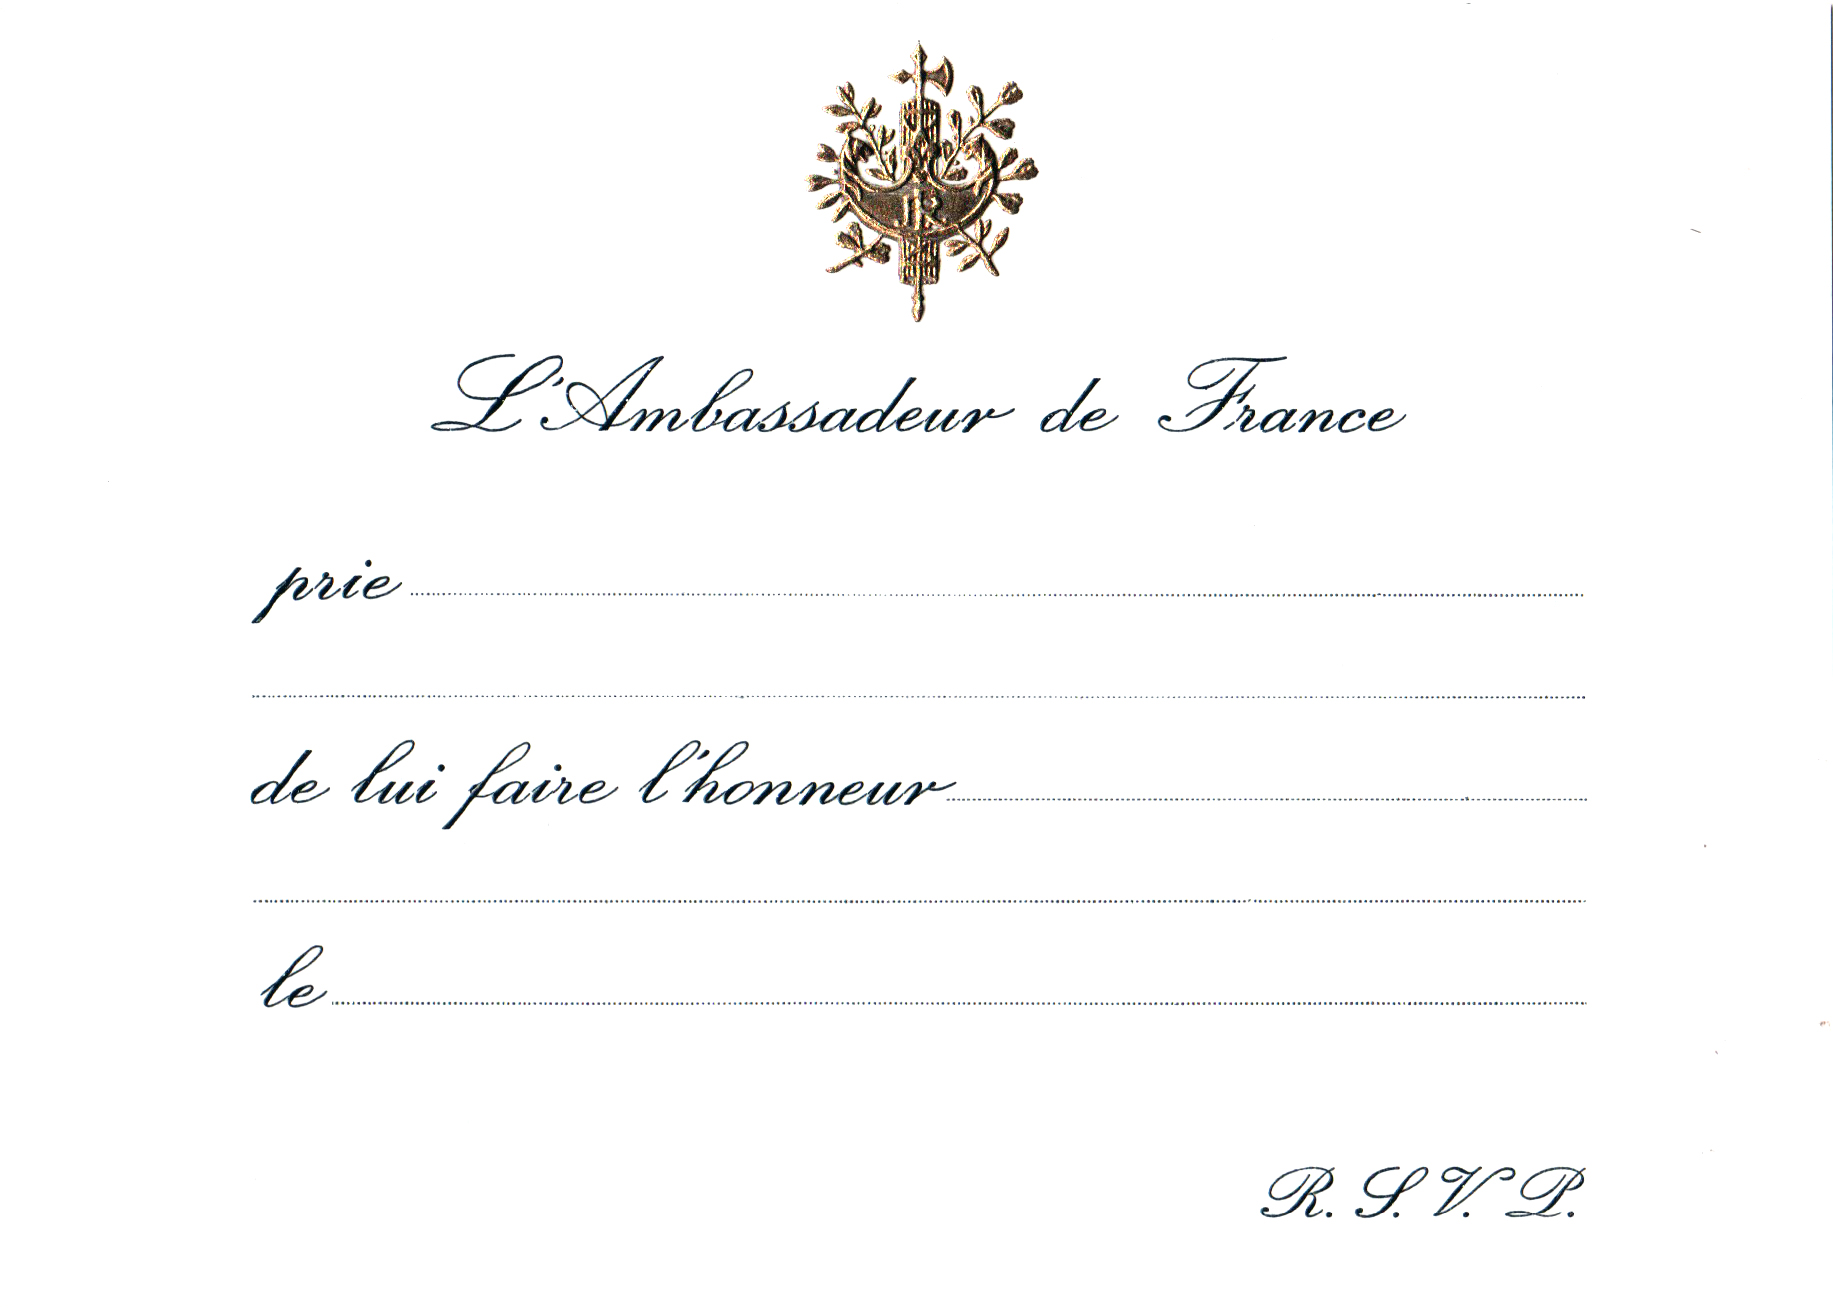 L'Ambassadeur de France
prie
de lui faire l'honneur
le
R. S. V. P.